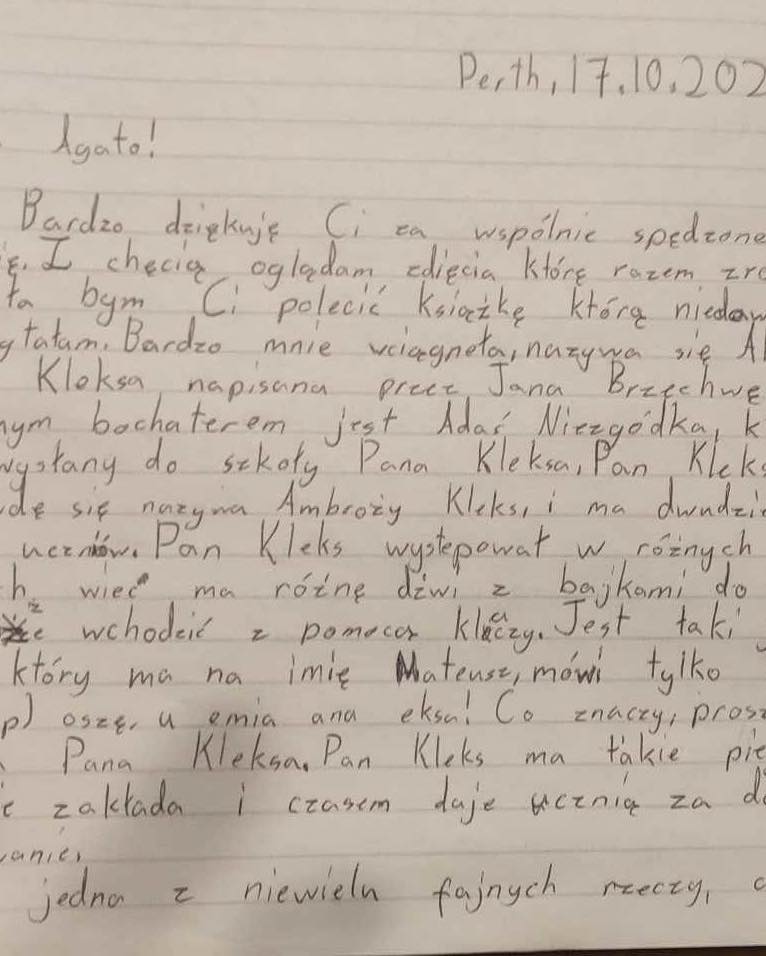 Perth, 17.10.202
Agato!
Bardzo dziękuję Ci za wspólnie spędzone
ę. I chęcią oglądam zdięcia którę razem zro
ta bym Ci polecić książkę którą niedaw
ytałam. Bardzo mnie wciągneła, nazywa się A
Kleksa, napisana przez Jana Brzechwę
nym bochaterem jest Adaś Niezgódka, k
wysłany do szkoły Pana Kleksa, Pan Kleks
dę się nazywa Ambroży Kleks, i ma dwudzie
uczniów. Pan Kleks występował w różnych
h, więc ma różnę dźwi z bajkami do
że wchodzić z pomocą klaczy. Jest taki
który ma na imię Mateusz, mówi tylko
p) oszę, u emia ana eksa! Co znaczy, prosz
Pana Kleksa. Pan Kleks ma takie pie
e zakłada i czasem daje ucznią za d
wanie,
jedna z niewielu fajnych rzeczy,